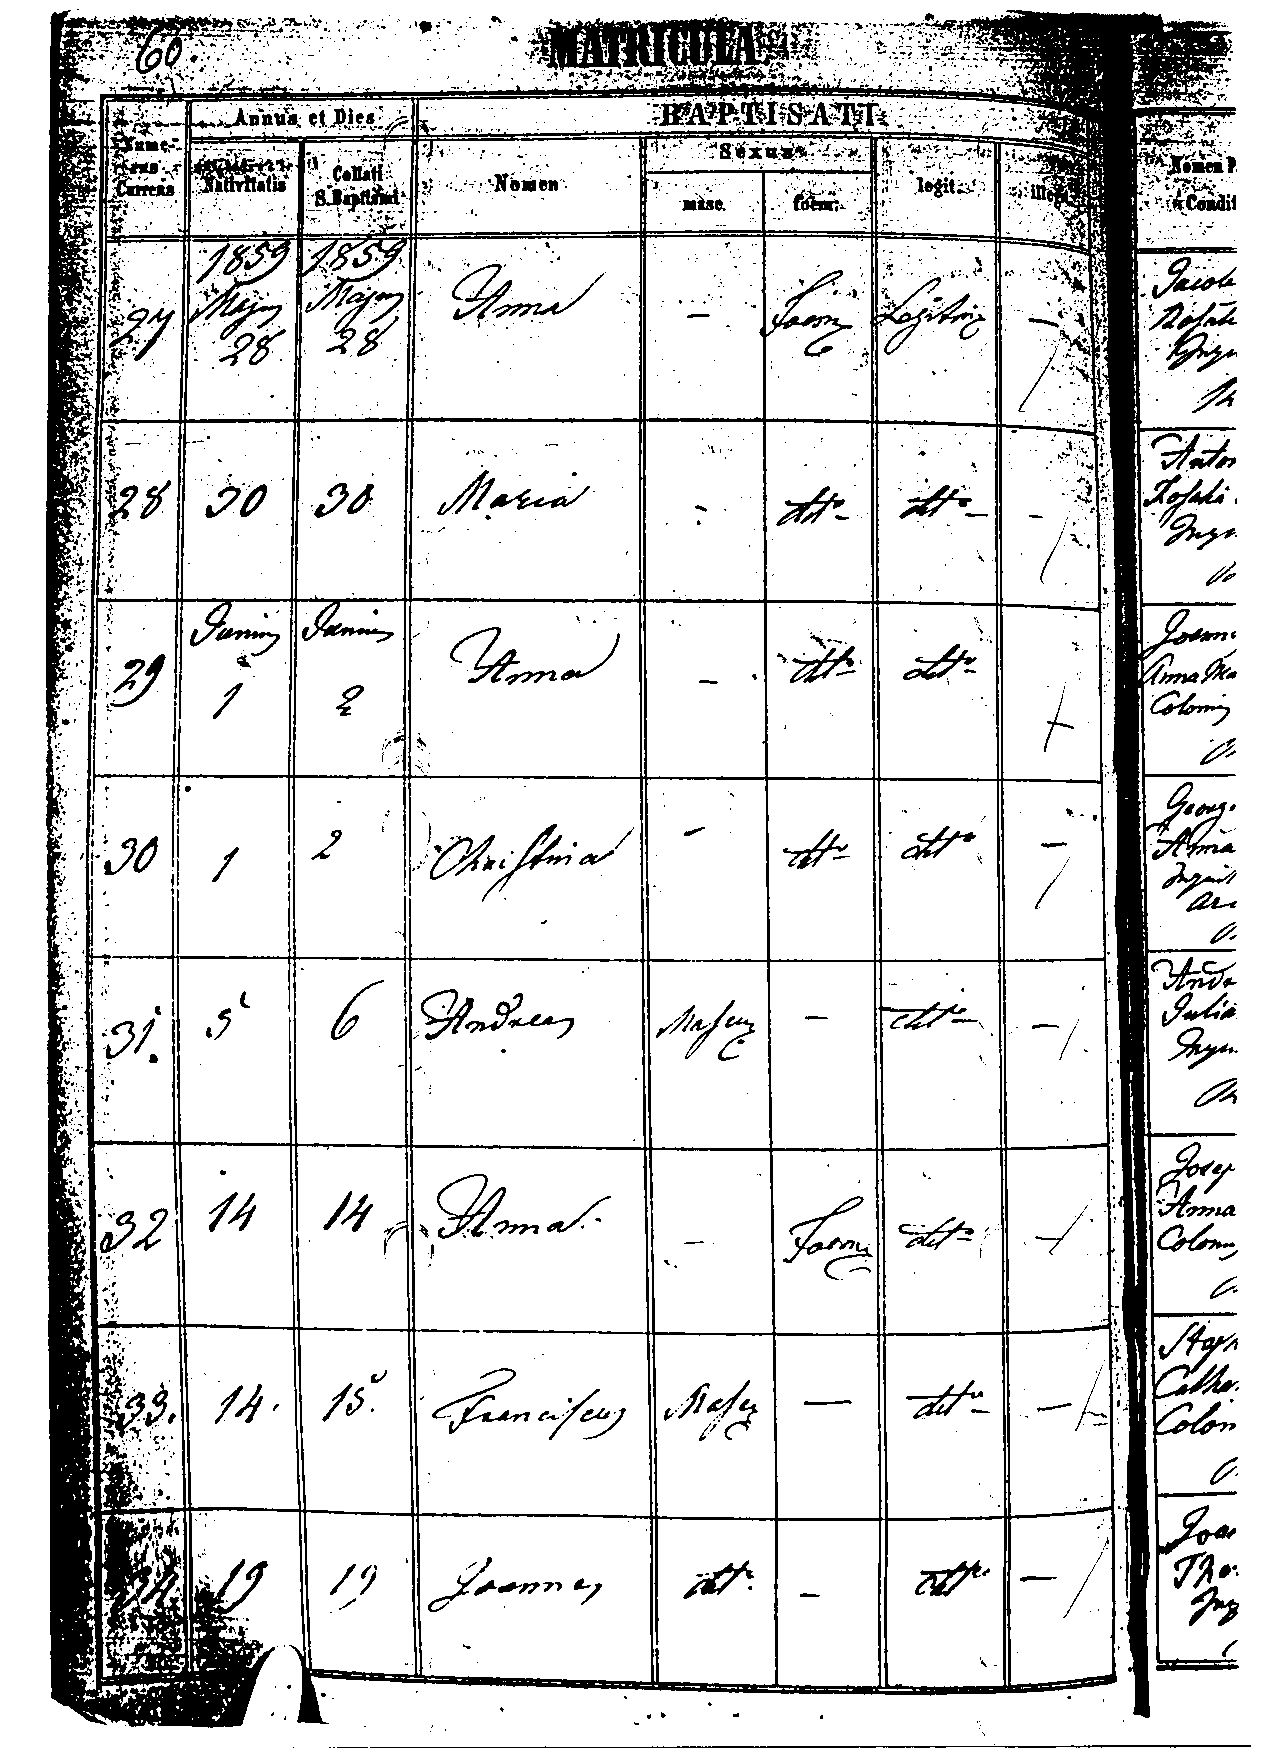 60.
MATRICULA
Numerus Currens
Annus et Dies
Nativitatis
Collati S. Baptismi
BAPTISATI
Nomen
Sexus
masc.
foem.
legit.
illeg.
Nomen P
& Condit
27 1859 Majus 28 1859 Majus 28 Anna — Foem Legitim —
Jacob
Rosali
Inqu
28 30 30 Maria - dtto dtto -
Anton
Rosali
Inqu
29 Junius 1 Junius 2 Anna - dtto dtto -
Joann
Anna Ma
Coloni
30 1 2 Christina - dtto dtto -
Georg
Anna
Inquil
31. 5 6 Andreas Mascu - dtto -
Andr
Julia
Inqu
32 14 14 Anna - Foem dtto -
Josep
Anna
Colonus
33. 14. 15. Franciscus Masc — dtto —
Steph
Catha
Colon
34 19 19 Joannes dtto. - dtto. —
Joa
The
Inq